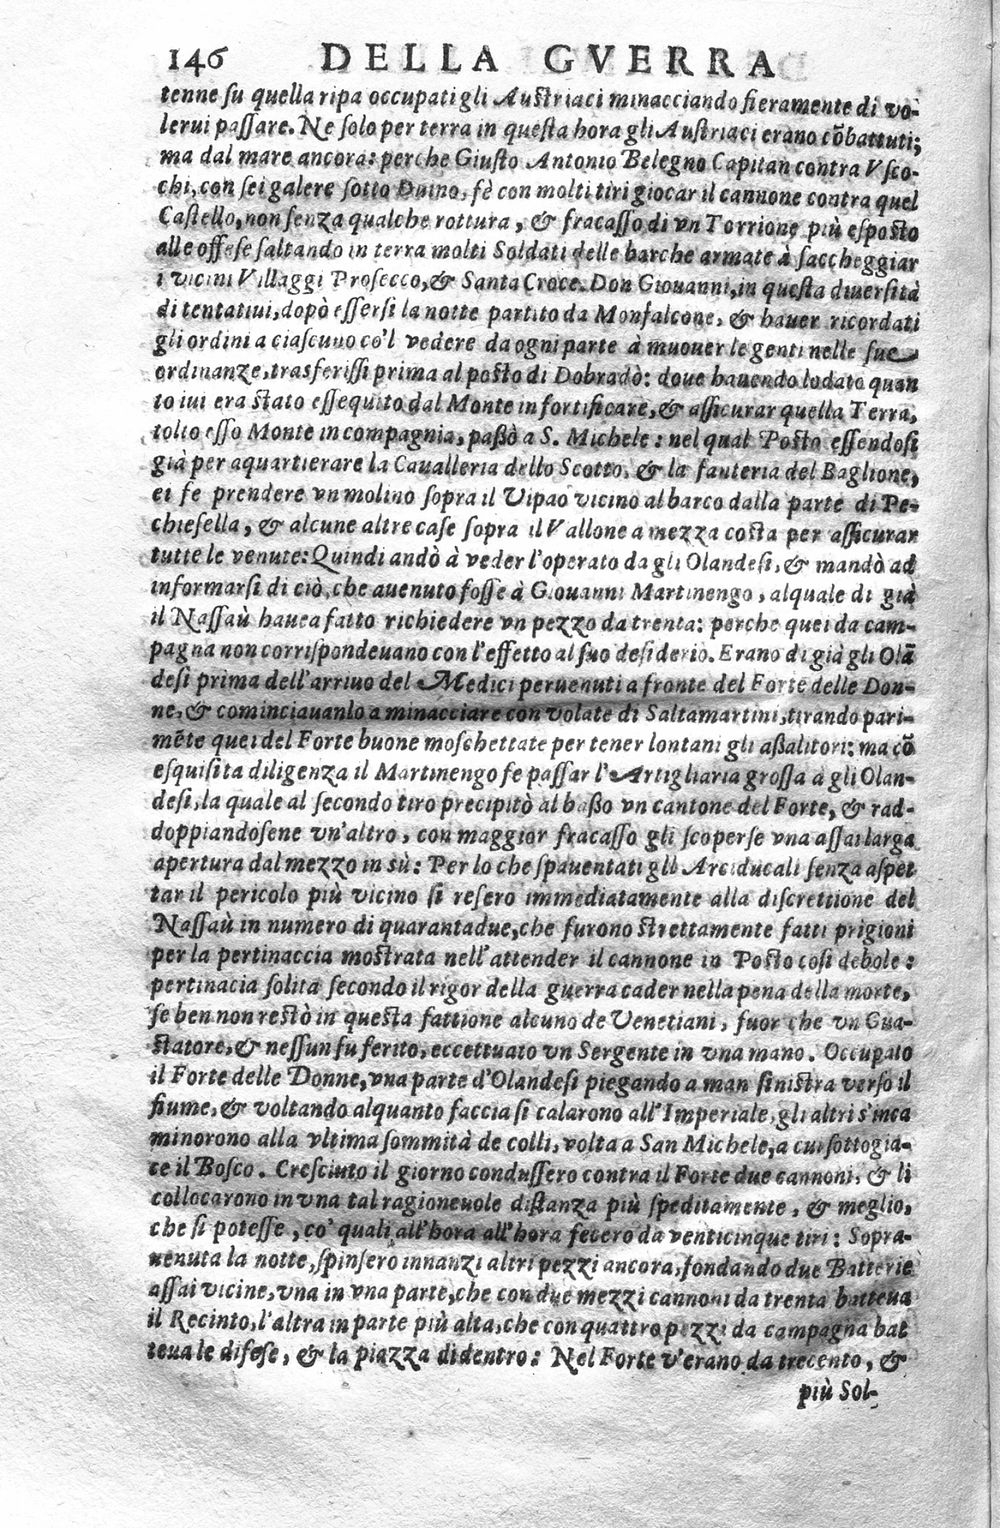 146 DELLA GVERRA
tenne su quella ripa occupati gli Austriaci minacciando fieramente di vo-
lerui passare. Ne solo per terra in questa hora gli Austriaci erano cõbattuti;
ma dal mare ancora: perche Giusto Antonio Belegno Capitan contra Vsco-
chi, con sei galere sotto Duino, fè con molti tiri giocar il cannone contra quel
Castello, non senza qualche rottura, & fracasso di vn Torrione più esposto
alle offese saltando in terra molti Soldati delle barche armate à saccheggiar
i vicini Villaggi Prosecco, & Santa Croce. Don Giouanni, in questa diuersità
di tentatiui, dopò essersi la notte partito da Monfalcone, & hauer ricordati
gli ordini a ciascuno co'l vedere da ogni parte à muouer le genti nelle sue
ordinanze, trasferissi prima al posto di Dobradò: doue hauendo lodato quan
to iui era stato essequito dal Monte in fortificare, & assicurar quella Terra,
tolto esso Monte in compagnia, paßò a S. Michele: nel qual Posto essendosi
già per aquartierare la Caualleria dello Scotto, & la fanteria del Baglione,
ei fe prendere vn molino sopra il Vipao vicino al barco dalla parte di Pe-
chiesella, & alcune altre case sopra il Vallone a mezza costa per assicurar
tutte le venute: Quindi andò à veder l'operato da gli Olandesi, & mandò ad
informarsi di ciò, che auenuto fosse à Giouanni Martinengo, alquale di già
il Nassaù hauea fatto richiedere vn pezzo da trenta: perche quei da cam-
pagna non corrispondeuano con l'effetto al suo desiderio. Erano di già gli Olã
desi prima dell'arriuo del Medici peruenuti a fronte del Forte delle Don-
ne, & cominciauanlo a minacciare con volate di Saltamartini, tirando pari-
mẽte quei del Forte buone moschettate per tener lontani gli aßalitori: ma cõ
esquisita diligenza il Martinengo fe passar l'Artigliaria grossa a gli Olan-
desi, la quale al secondo tiro precipitò al baßo vn cantone del Forte, & rad-
doppiandosene vn'altro, con maggior fracasso gli scoperse vna assai larga
apertura dal mezzo in sù: Per lo che spauentati gli Arciducali senza aspet
tar il pericolo più vicino si resero immediatamente alla discrettione del
Nassaù in numero di quarantadue, che furono strettamente fatti prigioni
per la pertinaccia mostrata nell'attender il cannone in Posto cosi debole:
pertinacia solita secondo il rigor della guerra cader nella pena della morte,
se ben non restò in questa fattione alcuno de Venetiani, fuor che vn Gua-
statore, & nessun fu ferito, eccettuato vn Sergente in vna mano. Occupato
il Forte delle Donne, vna parte d'Olandesi piegando a man sinistra verso il
fiume, & voltando alquanto faccia si calarono all'Imperiale, gli altri s'inca
minorono alla vltima sommità de colli, volta a San Michele, a cui sottogia-
ce il Bosco. Cresciuto il giorno condussero contra il Forte due cannoni, & li
collocarono in vna tal ragioneuole distanza più speditamente, & meglio,
che si potesse, co' quali all'hora all'hora fecero da venticinque tiri: Sopra-
uenuta la notte, spinsero innanzi altri pezzi ancora, fondando due Batterie
assai vicine, vna in vna parte, che con due mezzi cannoni da trenta batteua
il Recinto, l'altra in parte più alta, che con quattro pezzi da campagna bat
teua le difese, & la piazza di dentro: Nel Forte v'erano da trecento, &
più Sol-